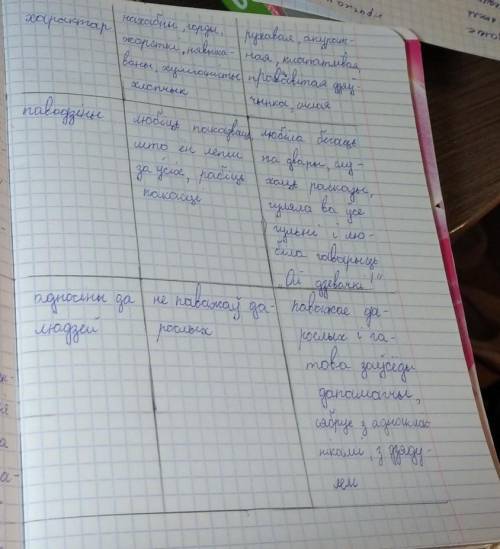 характар
нахабны, горды,
жорсткі, нявыха-
ваны, хуліганісты
хлопчык
рухавая, ануром-
ная, клапатлівая
дзяў-
чынка,
паводзіны
любіць паказваць
што ён лепш
за ўсіх, рабіць
пакасці
любіла бегаць
па двары, слу-
хаць расказы,
гуляла ва усе
гульні і лю-
біла гаварыць
„Ой дзевачкі!"
адносіны да
людзей
не паважаў да-
рослых
паважае да-
рослых і га-
това заўсёды
дапамагчы,
сябруе з аднаклас
нікамі, з дзяду-
лем